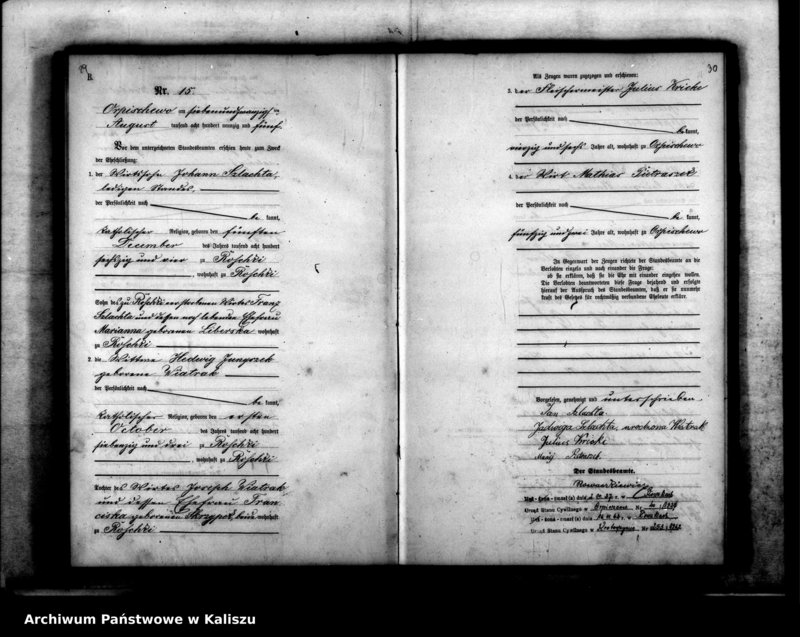 29
B.
Nr. 15
Orpischewo am siebenundzwanzigsten
August tausend acht hundert neunzig und fünf
Vor dem unterzeichneten Standesbeamten erschien heute zum Zweck
der Eheschließung:
1. der Wirthssohn Johann Szlachta,
ledigen Standes,
der Persönlichkeit nach
be kannt,
katholischer Religion, geboren den fünften
December des Jahres tausend acht hundert
sechszig und vier zu Roschki
, wohnhaft zu Roschki
Sohn des zu Roschki verstorbenen Wirtes Franz
Szlachta und dessen noch lebenden Ehefrau
Marianna geborenen Liberska wohnhaft
zu Roschki
2. die Wittwe Hedwig
geborene Wiatrak
der Persönlichkeit nach
be kannt,
katholischer Religion, geboren den ersten
October des Jahres tausend acht hundert
siebenzig und drei zu Roschki
, wohnhaft zu Roschki
Tochter des Wirtes Joseph Wiatrak
und dessen Ehefrau Fran-
ciska geborenen Skrzypek, beide wohnhaft
zu Roschki
30
Als Zeugen waren zugezogen und erschienen:
3. der Fleischermeister Julius Kricke
der Persönlichkeit nach
be kannt,
vierzig und sechs Jahre alt, wohnhaft zu Orpischewo
4. der Wirt Mathias Pietraszek
der Persönlichkeit nach
be kannt,
fünfzig und zwei Jahre alt, wohnhaft zu Orpischewo
In Gegenwart der Zeugen richtete der Standesbeamte an die
Verlobten einzeln und nach einander die Frage:
ob sie erklären, daß sie die Ehe mit einander eingehen wollen.
Die Verlobten beantworteten diese Frage bejahend und erfolgte
hierauf der Ausspruch des Standesbeamten, daß er sie nunmehr
kraft des Gesetzes für rechtmäßig verbundene Eheleute erkläre.
Vorgelesen, genehmigt und unterschrieben
Jan Szlachta
Jadwiga Szlachta, urodzona Wiatrak
Julius Kricke
Der Standesbeamte.
Nowaczkiewicz
Mąż - żona - zmarł(a) dnia
Urząd Stanu Cywilnego w Nr
Mąż - żona - zmarł(a) dnia
Urząd Stanu Cywilnego w Krotoszynie Nr
Archiwum Państwowe w Kaliszu